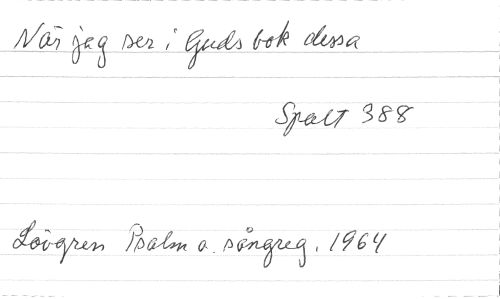 När jag ser i Guds bok dessa
Spalt 388
Lövgren Psalm o. sångreg. 1964